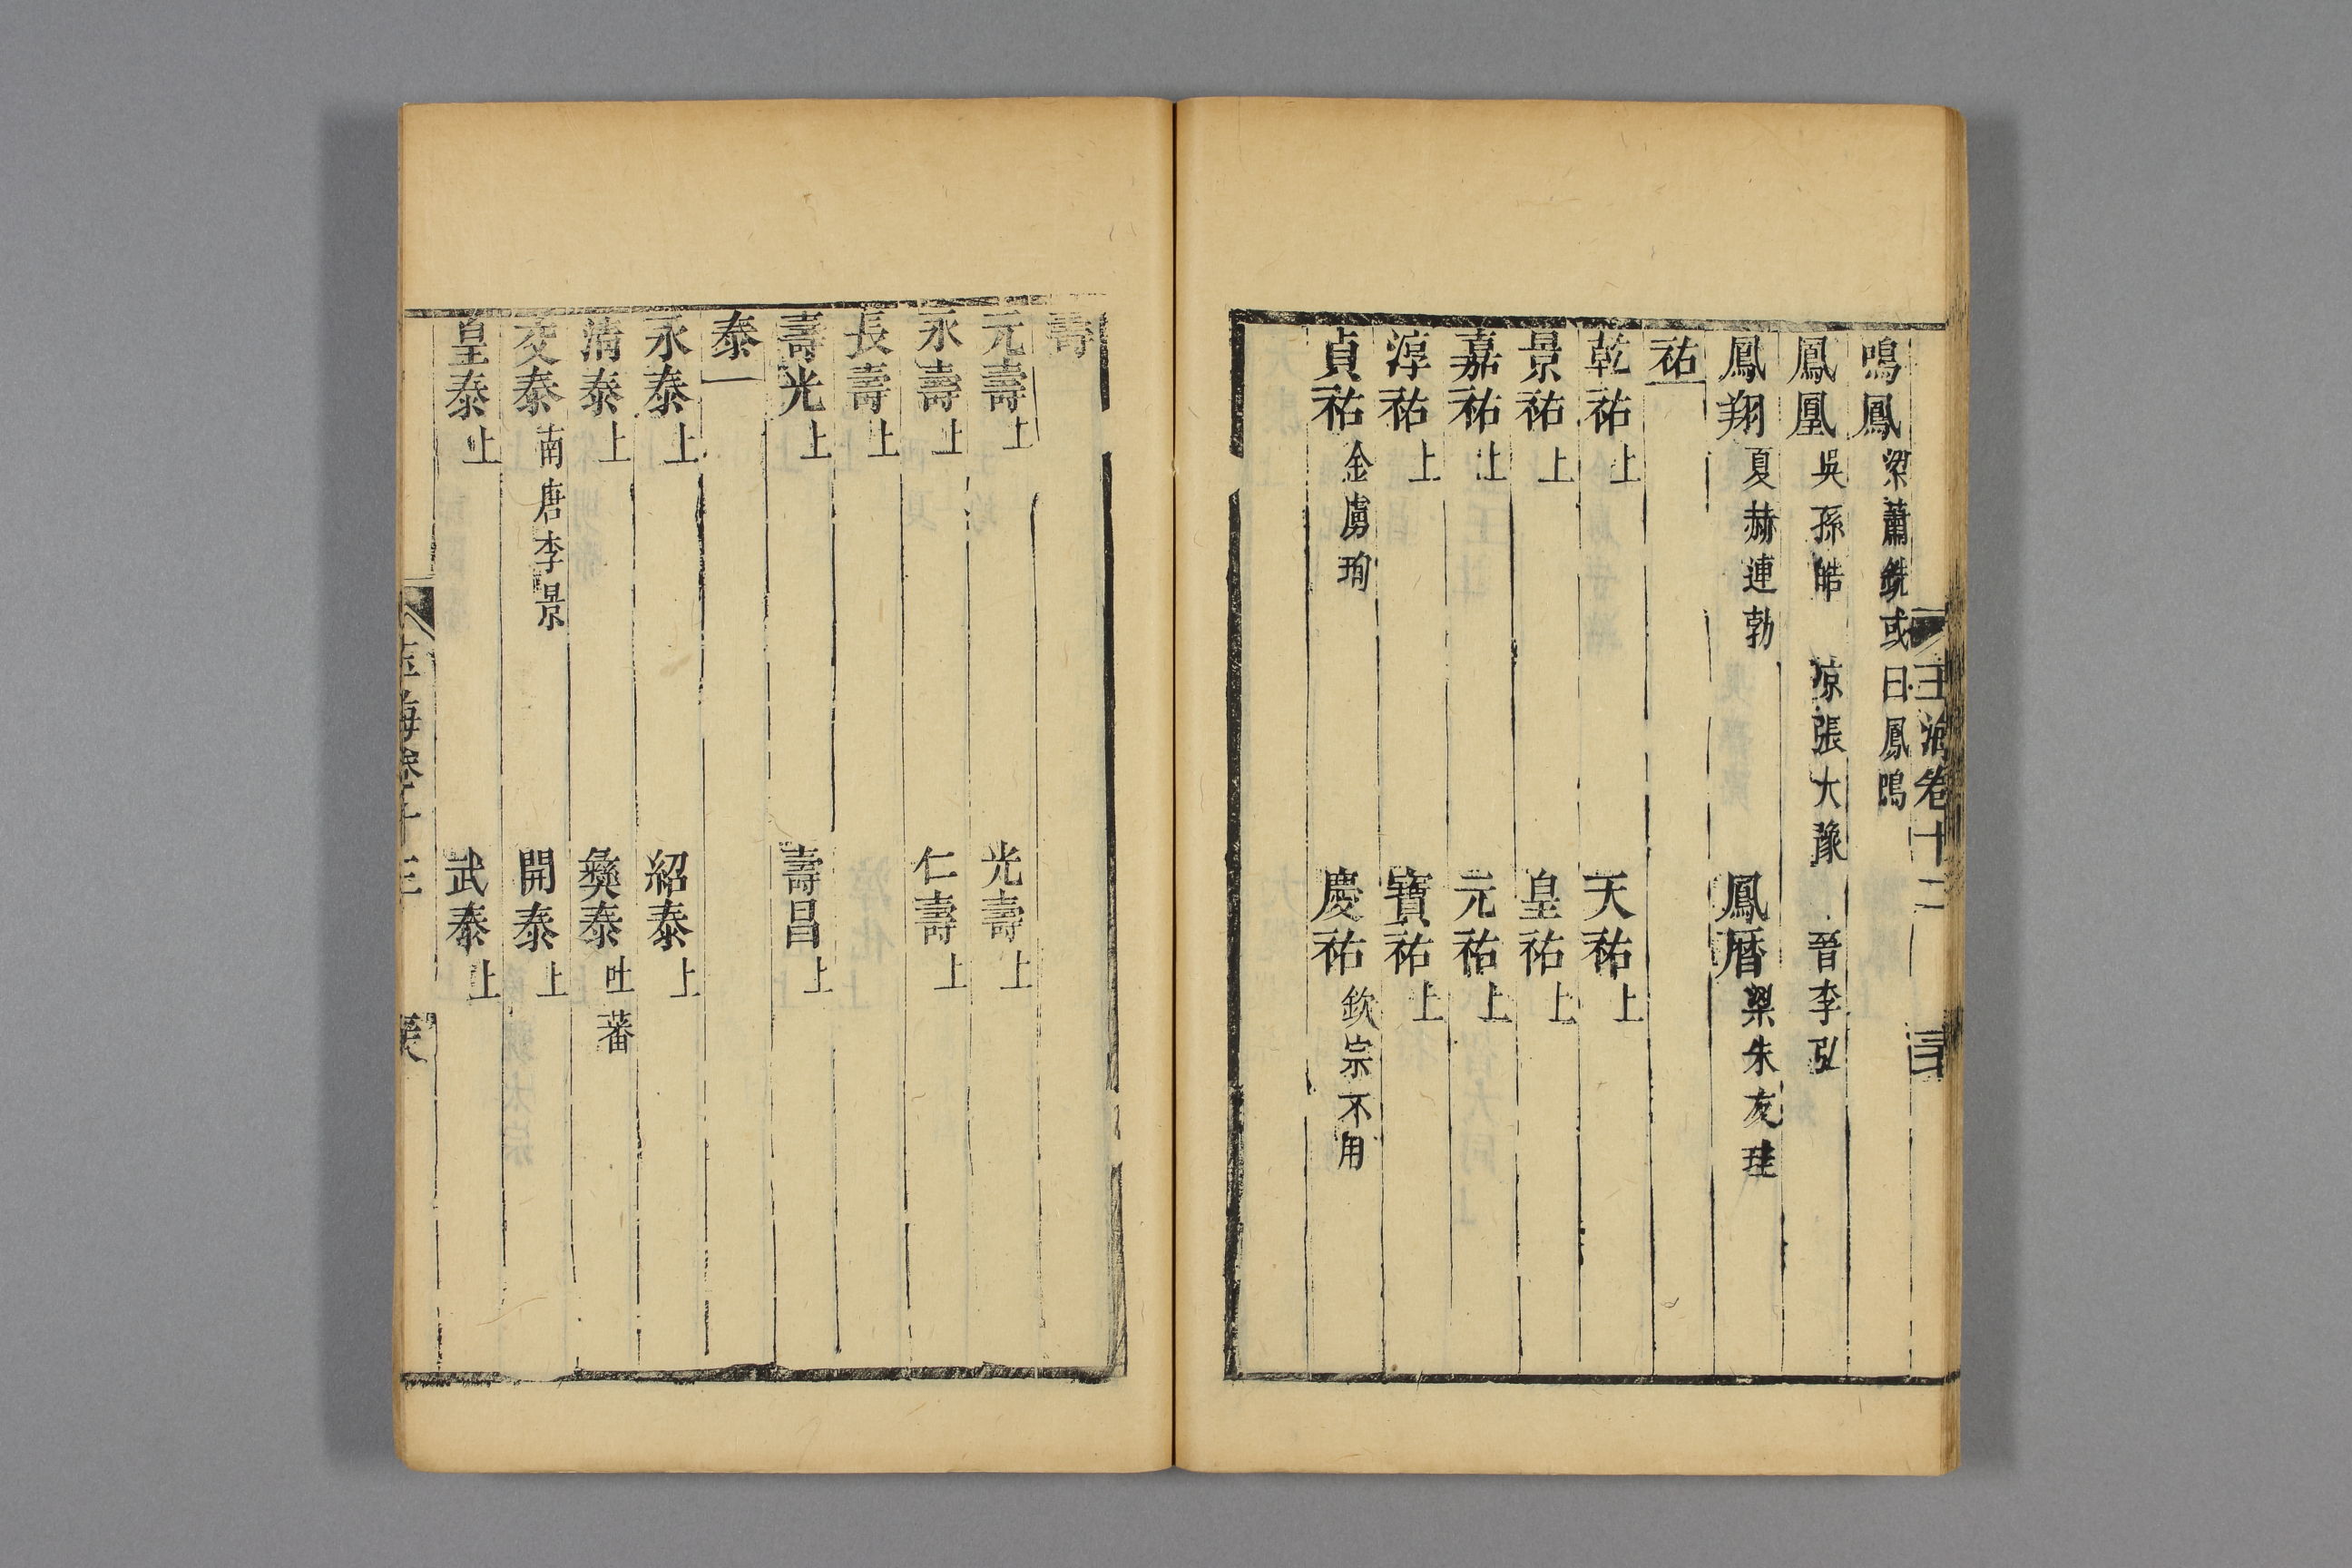 鳴鳳 梁蕭銑或曰鳳鳴
鳳凰 吳孫皓 凉張大豫 晉李弘
鳳翔 夏赫連勃 鳳曆 梁朱友珪
祐
乾祐上 天祐上
景祐上 皇祐上
嘉祐上 元祐上
淳祐上 寶祐上
貞祐 金虜珣 慶祐 欽宗不用
壽
元壽上 光壽上
永壽上 仁壽上
長壽上
壽光上 壽昌上
泰
永泰上 紹泰上
清泰上 彝泰 吐蕃
交泰 南唐李景 開泰上
皇泰上 武泰上
玉海卷十三